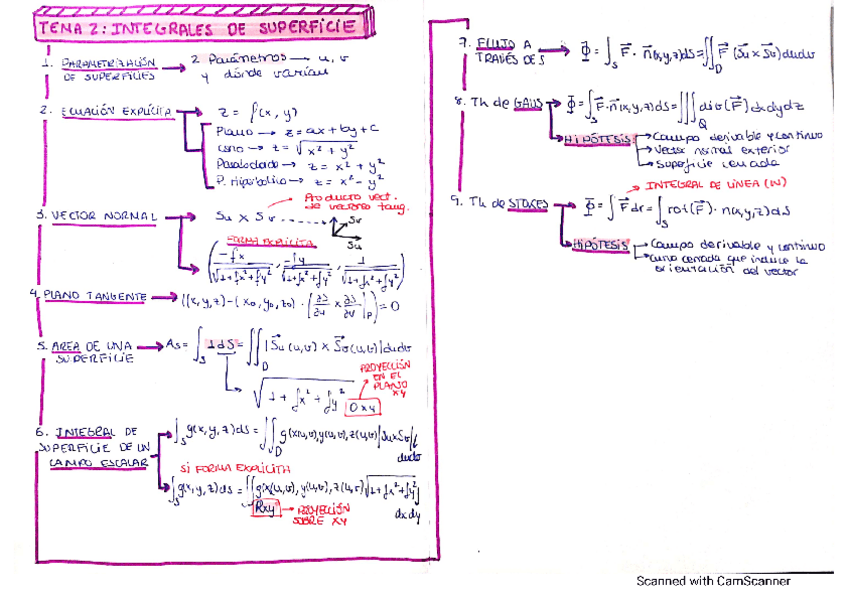 TEMA 2: INTEGRALES DE SUPERFICIE
1. PARAMETRIZACIÓN DE SUPERFICIES → 2 Parámetros → u, v
y dónde varían
2. ECUACIÓN EXPLÍCITA → z = f(x, y)
Plano → z = ax + by + c
Cono → z = √(x² + y²)
Paraboloide → z = x² + y²
P. Hiperbólico → z = x² - y²
Producto vect. de vectores tang.
3. VECTOR NORMAL → Su x Sv
Sv
Su
FORMA EXPLÍCITA
(-fx/√(1+fx²+fy²), -fy/√(1+fx²+fy²), 1/√(1+fx²+fy²))
4. PLANO TANGENTE → ((x,y,z)-(x₀,y₀,z₀)·(∂S/∂u x ∂S/∂v|p)=0
5. AREA DE UNA SUPERFICIE → As = ∫s 1dS = ∬D |Su(u,v) x Sv(u,v)|dudv
√(1 + fx² + fy²) Dxy
PROYECCIÓN EN EL PLANO XY
6. INTEGRAL DE SUPERFICIE DE UN CAMPO ESCALAR
∫s g(x,y,z)ds = ∬D g(x(u,v),y(u,v),z(u,v))|Su x Sv| dudv
SI FORMA EXPLÍCITA
∫s g(x,y,z)ds = ∬Rxy g(x(u,v),y(u,v),z(u,v))√(1+fx²+fy²) dxdy
→ PROYECCIÓN SOBRE XY
7. FLUJO A TRAVÉS DE S → Φ = ∫s F · n(x,y,z)ds = ∬D F (Su x Sv)dudv
8. Th de GAUS → Φ = ∫s F·n(x,y,z)ds = ∭Q div(F) dxdydz
HIPÓTESIS → Campo derivable y continuo
→ Vector normal exterior
→ Superficie cerrada
INTEGRAL DE LÍNEA (W)
9. Th de STOKES → Φ = ∫ F dr = ∫s rot(F) · n(x,y,z)ds
HIPÓTESIS → Campo derivable y continuo
→ Curva cerrada que induce la
orientación del vector
Scanned with CamScanner